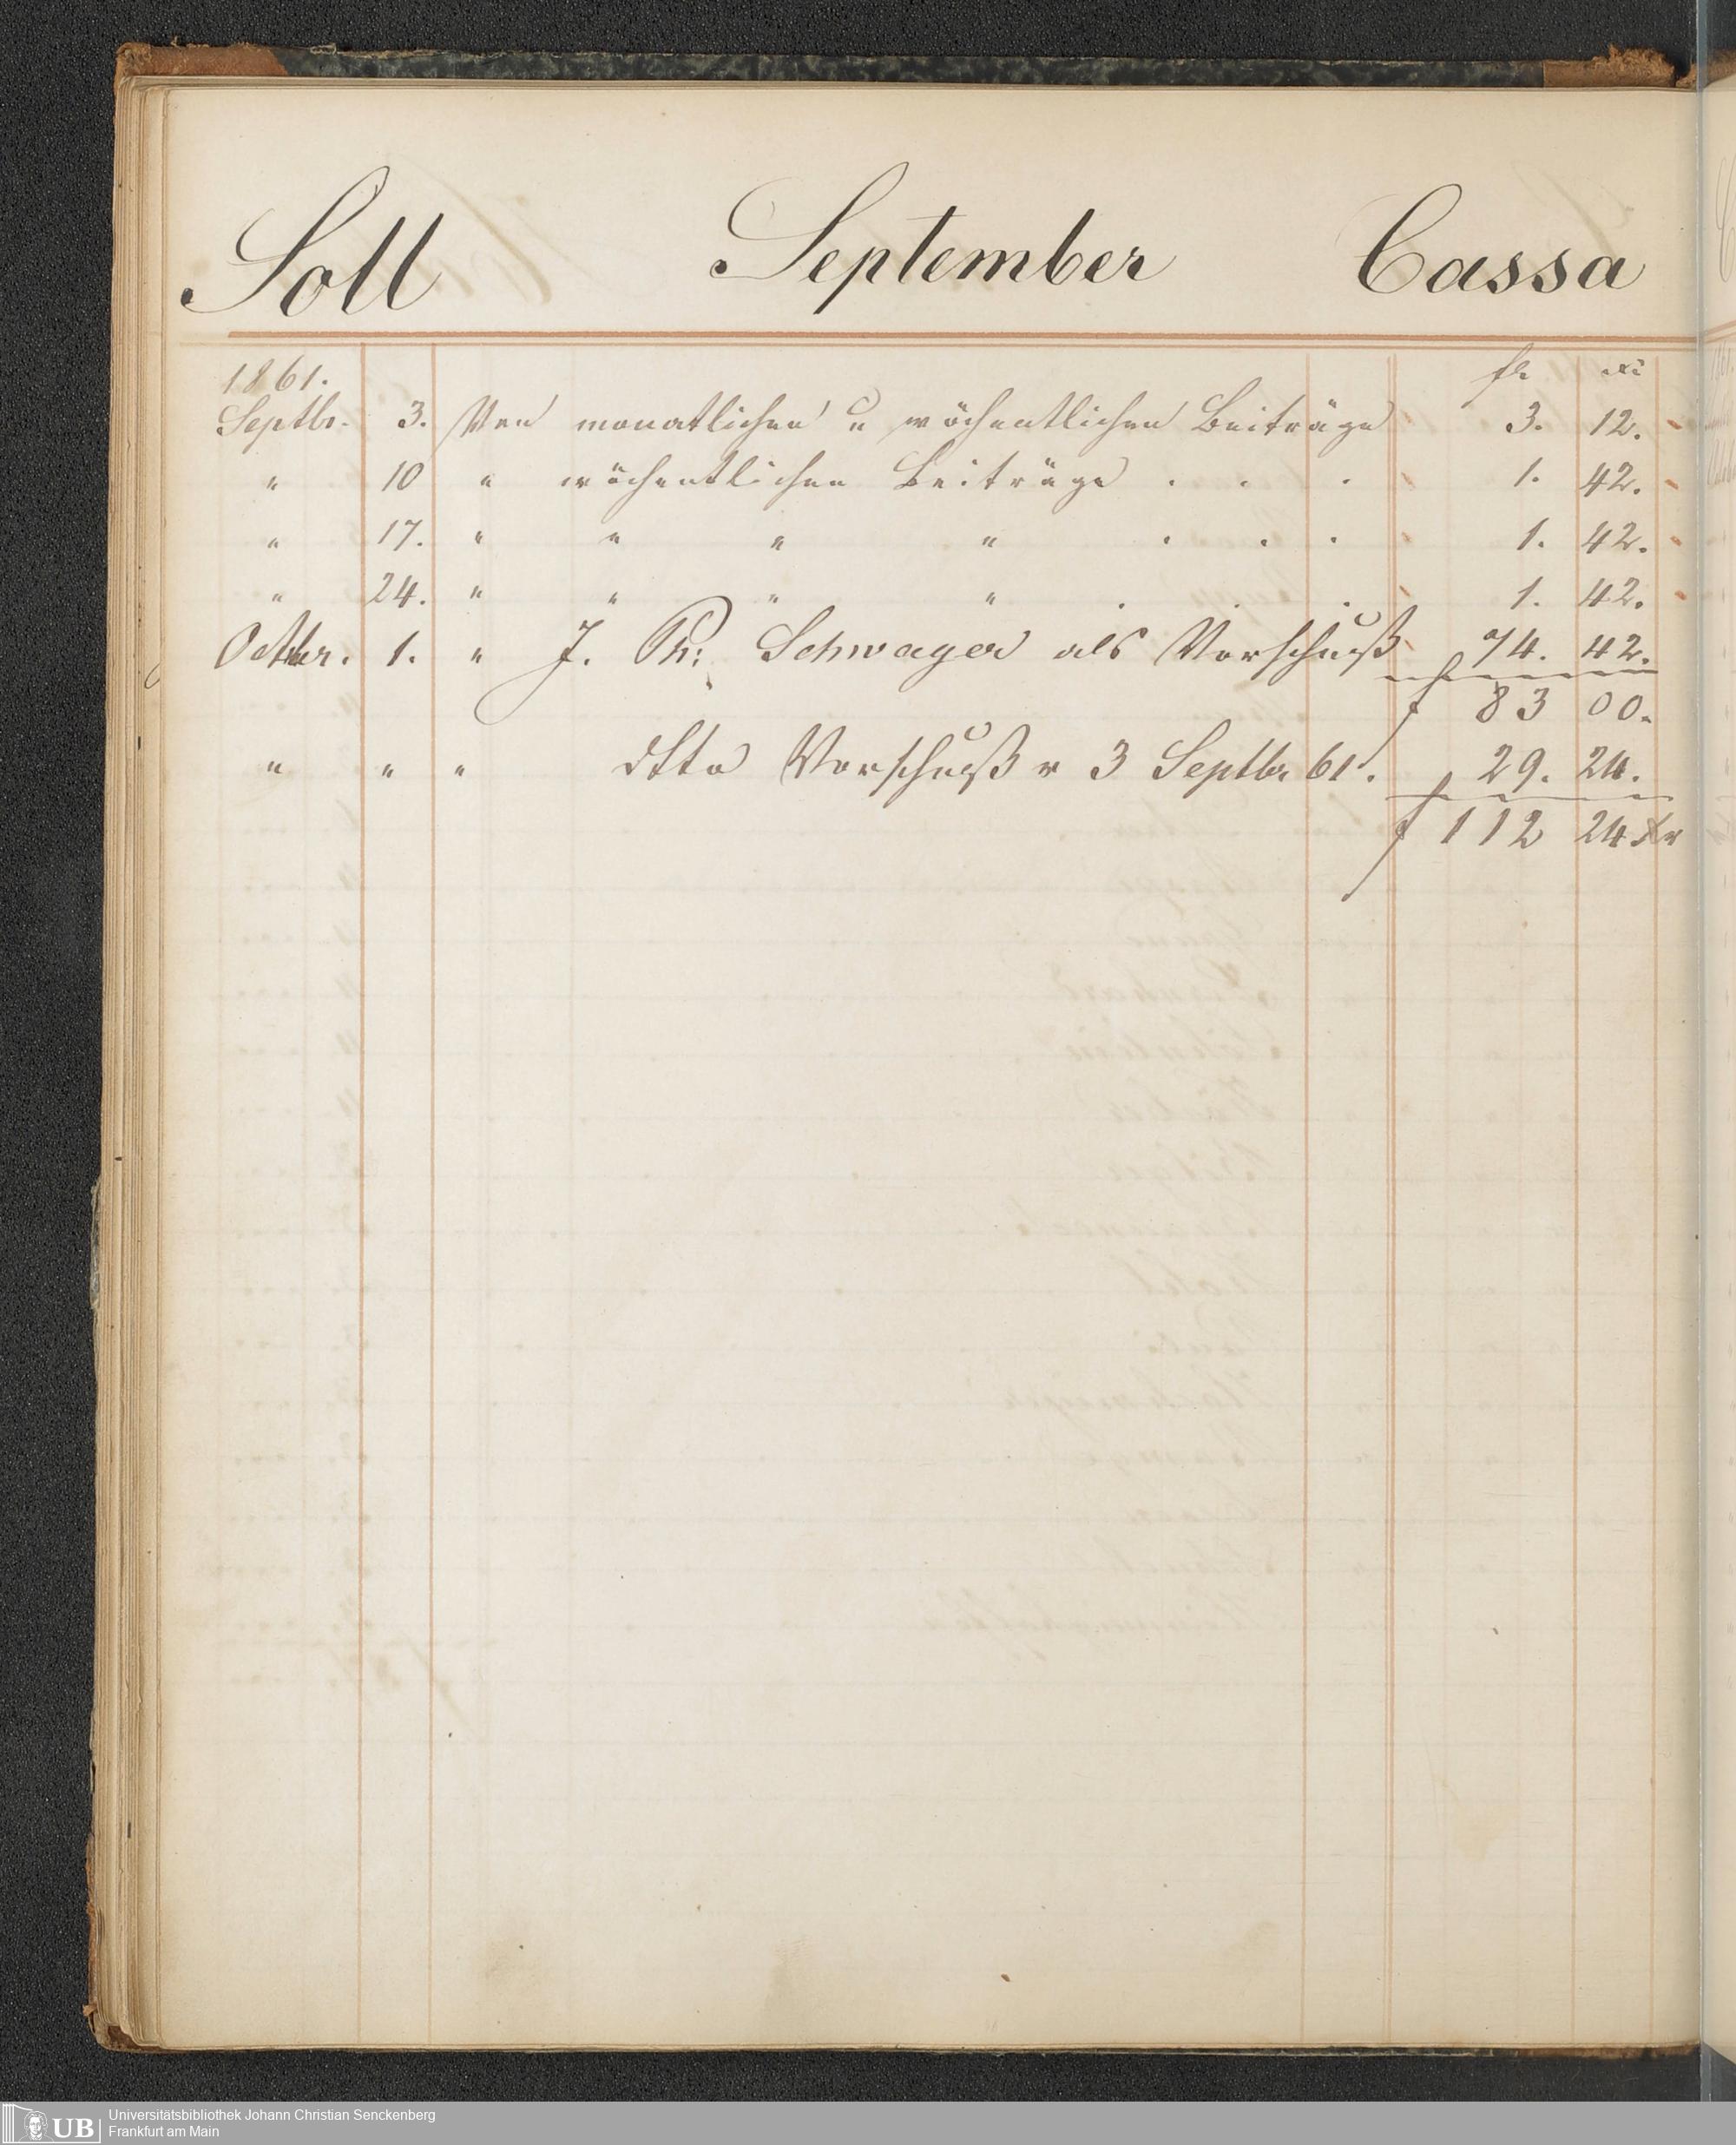 Soll September Cassa
1861. fl. xr
Septbr. 3. Von monatlichen u wöchentlichen Beiträge 3. 12.
" 10 " wöchentlichen Beiträge . . . 1. 42.
" 17. " " " " . . . 1. 42.
" 24. " " " " . . . 1. 42.
Octbr. 1. " J. Ph: Schwager als Vorschuß 74. 42.
f 83 00.
" " " dtto Vorschuß v 3 Septbr 61. 29. 24.
f 112 24 Xr
UB
Universitätsbibliothek Johann Christian Senckenberg
Frankfurt am Main